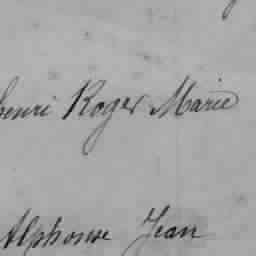 henri Roger Marie
Alphonse Jean